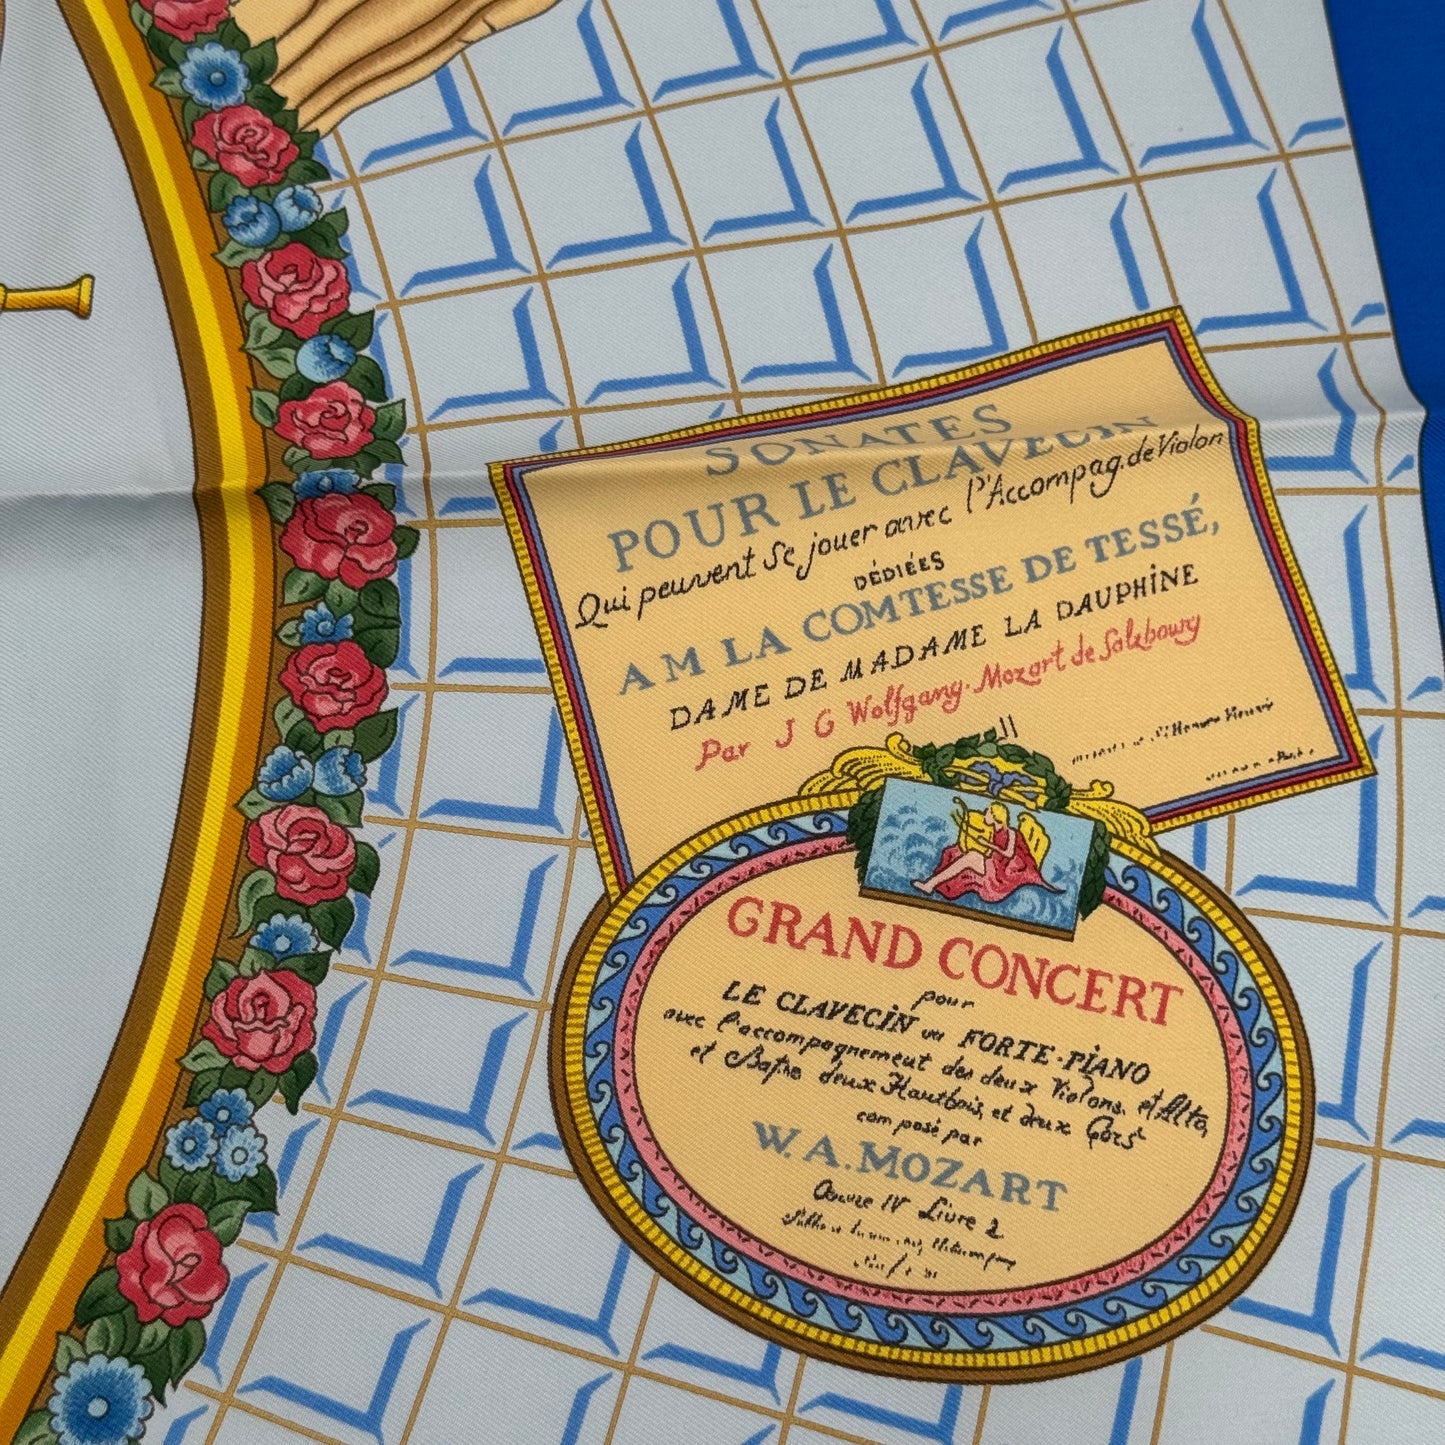 SONATES
POUR LE CLAVECIN
Qui peuvent se jouer avec l'Accompag. de Violon
DÉDIÉES
A M LA COMTESSE DE TESSÉ,
DAME DE MADAME LA DAUPHINE
Par J G Wolfgang. Mozart de Salzbourg
GRAND CONCERT
pour
LE CLAVECIN ou FORTE-PIANO
avec l'accompagnement des deux Violons, et Alto,
et Basse deux Hautbois, et deux Cors
composé par
W. A. MOZART
Oeuvre IV Livre 2